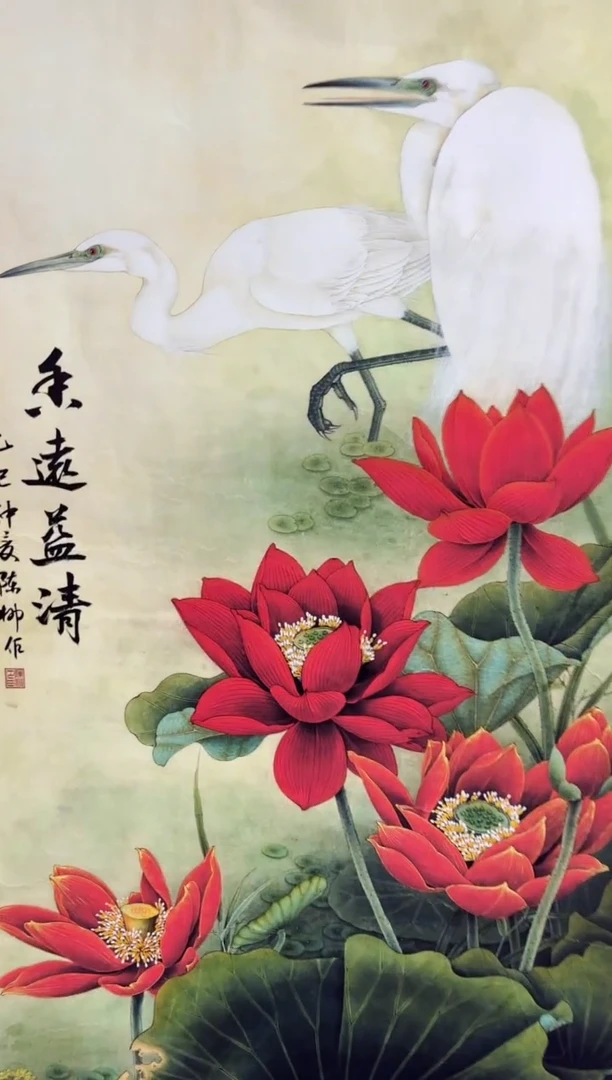 香遠益清
乙巳仲夏陈柳作